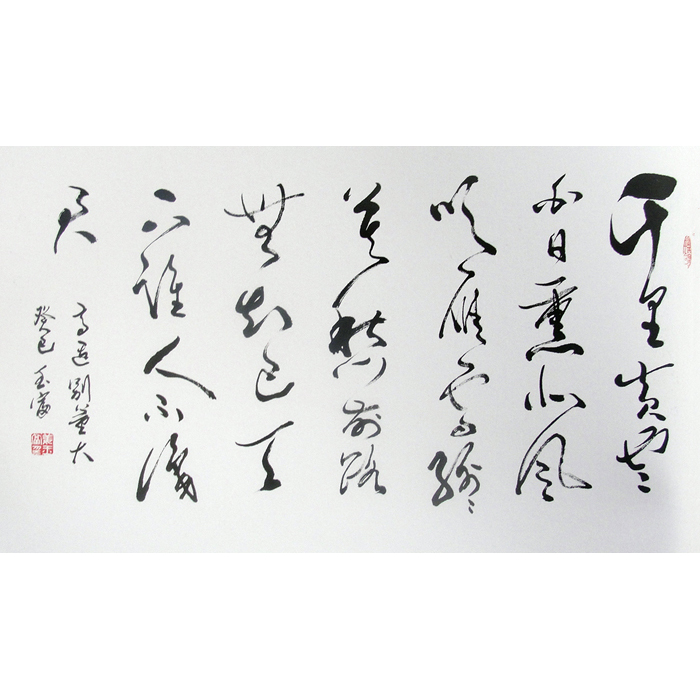 千里黄云
白日熏北风
吹雁雪纷〻
莫愁前路
無知己天
下谁人不识
君
高适别董大
癸巳玉富